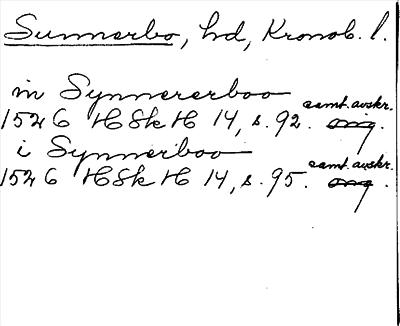 Sunnerbo, hd, Kronob. l.
in Synnererboo
samt. avskr.
1526 HSkH 14, s. 92. orig.
i Synnerboo
samt. avskr.
1526 HSkH 14, s. 95. orig.